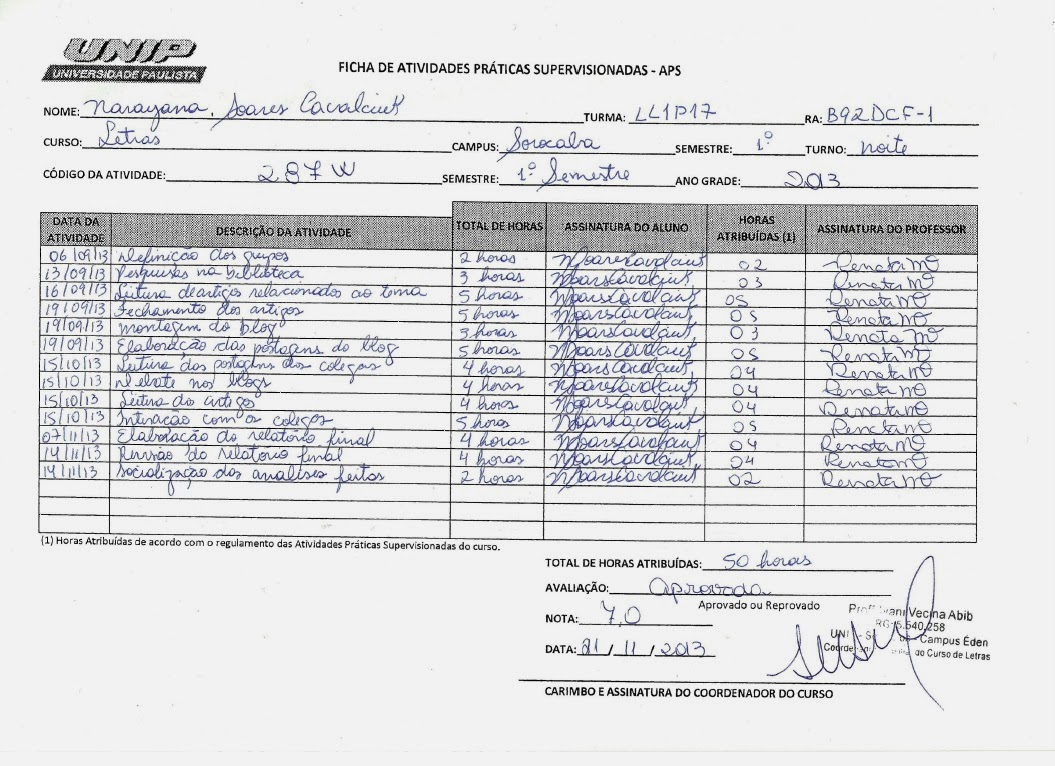 UNIP
UNIVERSIDADE PAULISTA
FICHA DE ATIVIDADES PRÁTICAS SUPERVISIONADAS - APS
NOME: Narayana Soares Cavalcint TURMA: LL1P17 RA: B92DCF-1
CURSO: Letras CAMPUS: Sorocaba SEMESTRE: 1º TURNO: noite
CÓDIGO DA ATIVIDADE: 287W SEMESTRE: 1º Semestre ANO GRADE: 2013
DATA DA ATIVIDADE DESCRIÇÃO DA ATIVIDADE TOTAL DE HORAS ASSINATURA DO ALUNO HORAS ATRIBUÍDAS (1) ASSINATURA DO PROFESSOR
06/09/13 Definição dos grupos 2 horas 02 Renata
13/09/13 Pesquisas na biblioteca 3 horas 03 Renata
16/09/13 Leitura de artigos relacionados ao tema 5 horas 05 Renata
19/09/13 Fechamento dos artigos 5 horas 05 Renata
19/09/13 montagem do blog 3 horas 03 Renata
19/09/13 Elaboração das postagens do blog 5 horas 05 Renata
15/10/13 Leitura das postagens dos colegas 4 horas 04 Renata
15/10/13 Debate nos blogs 4 horas 04 Renata
15/10/13 Leitura do artigos 4 horas 04 Renata
15/10/13 Interação com os colegas 5 horas 05 Renata
07/11/13 Elaboração do relatório final 4 horas 04 Renata
14/11/13 Revisão do relatório final 4 horas 04 Renata
14/11/13 Socialização das analises feitas 2 horas 02 Renata
(1) Horas Atribuídas de acordo com o regulamento das Atividades Práticas Supervisionadas do curso.
TOTAL DE HORAS ATRIBUÍDAS: 50 horas
AVALIAÇÃO: Aprovada
Aprovado ou Reprovado
NOTA: 7,0
DATA: 21/11/2013
Vecina Abib
5.540.258
Campus Éden
do Curso de Letras
CARIMBO E ASSINATURA DO COORDENADOR DO CURSO